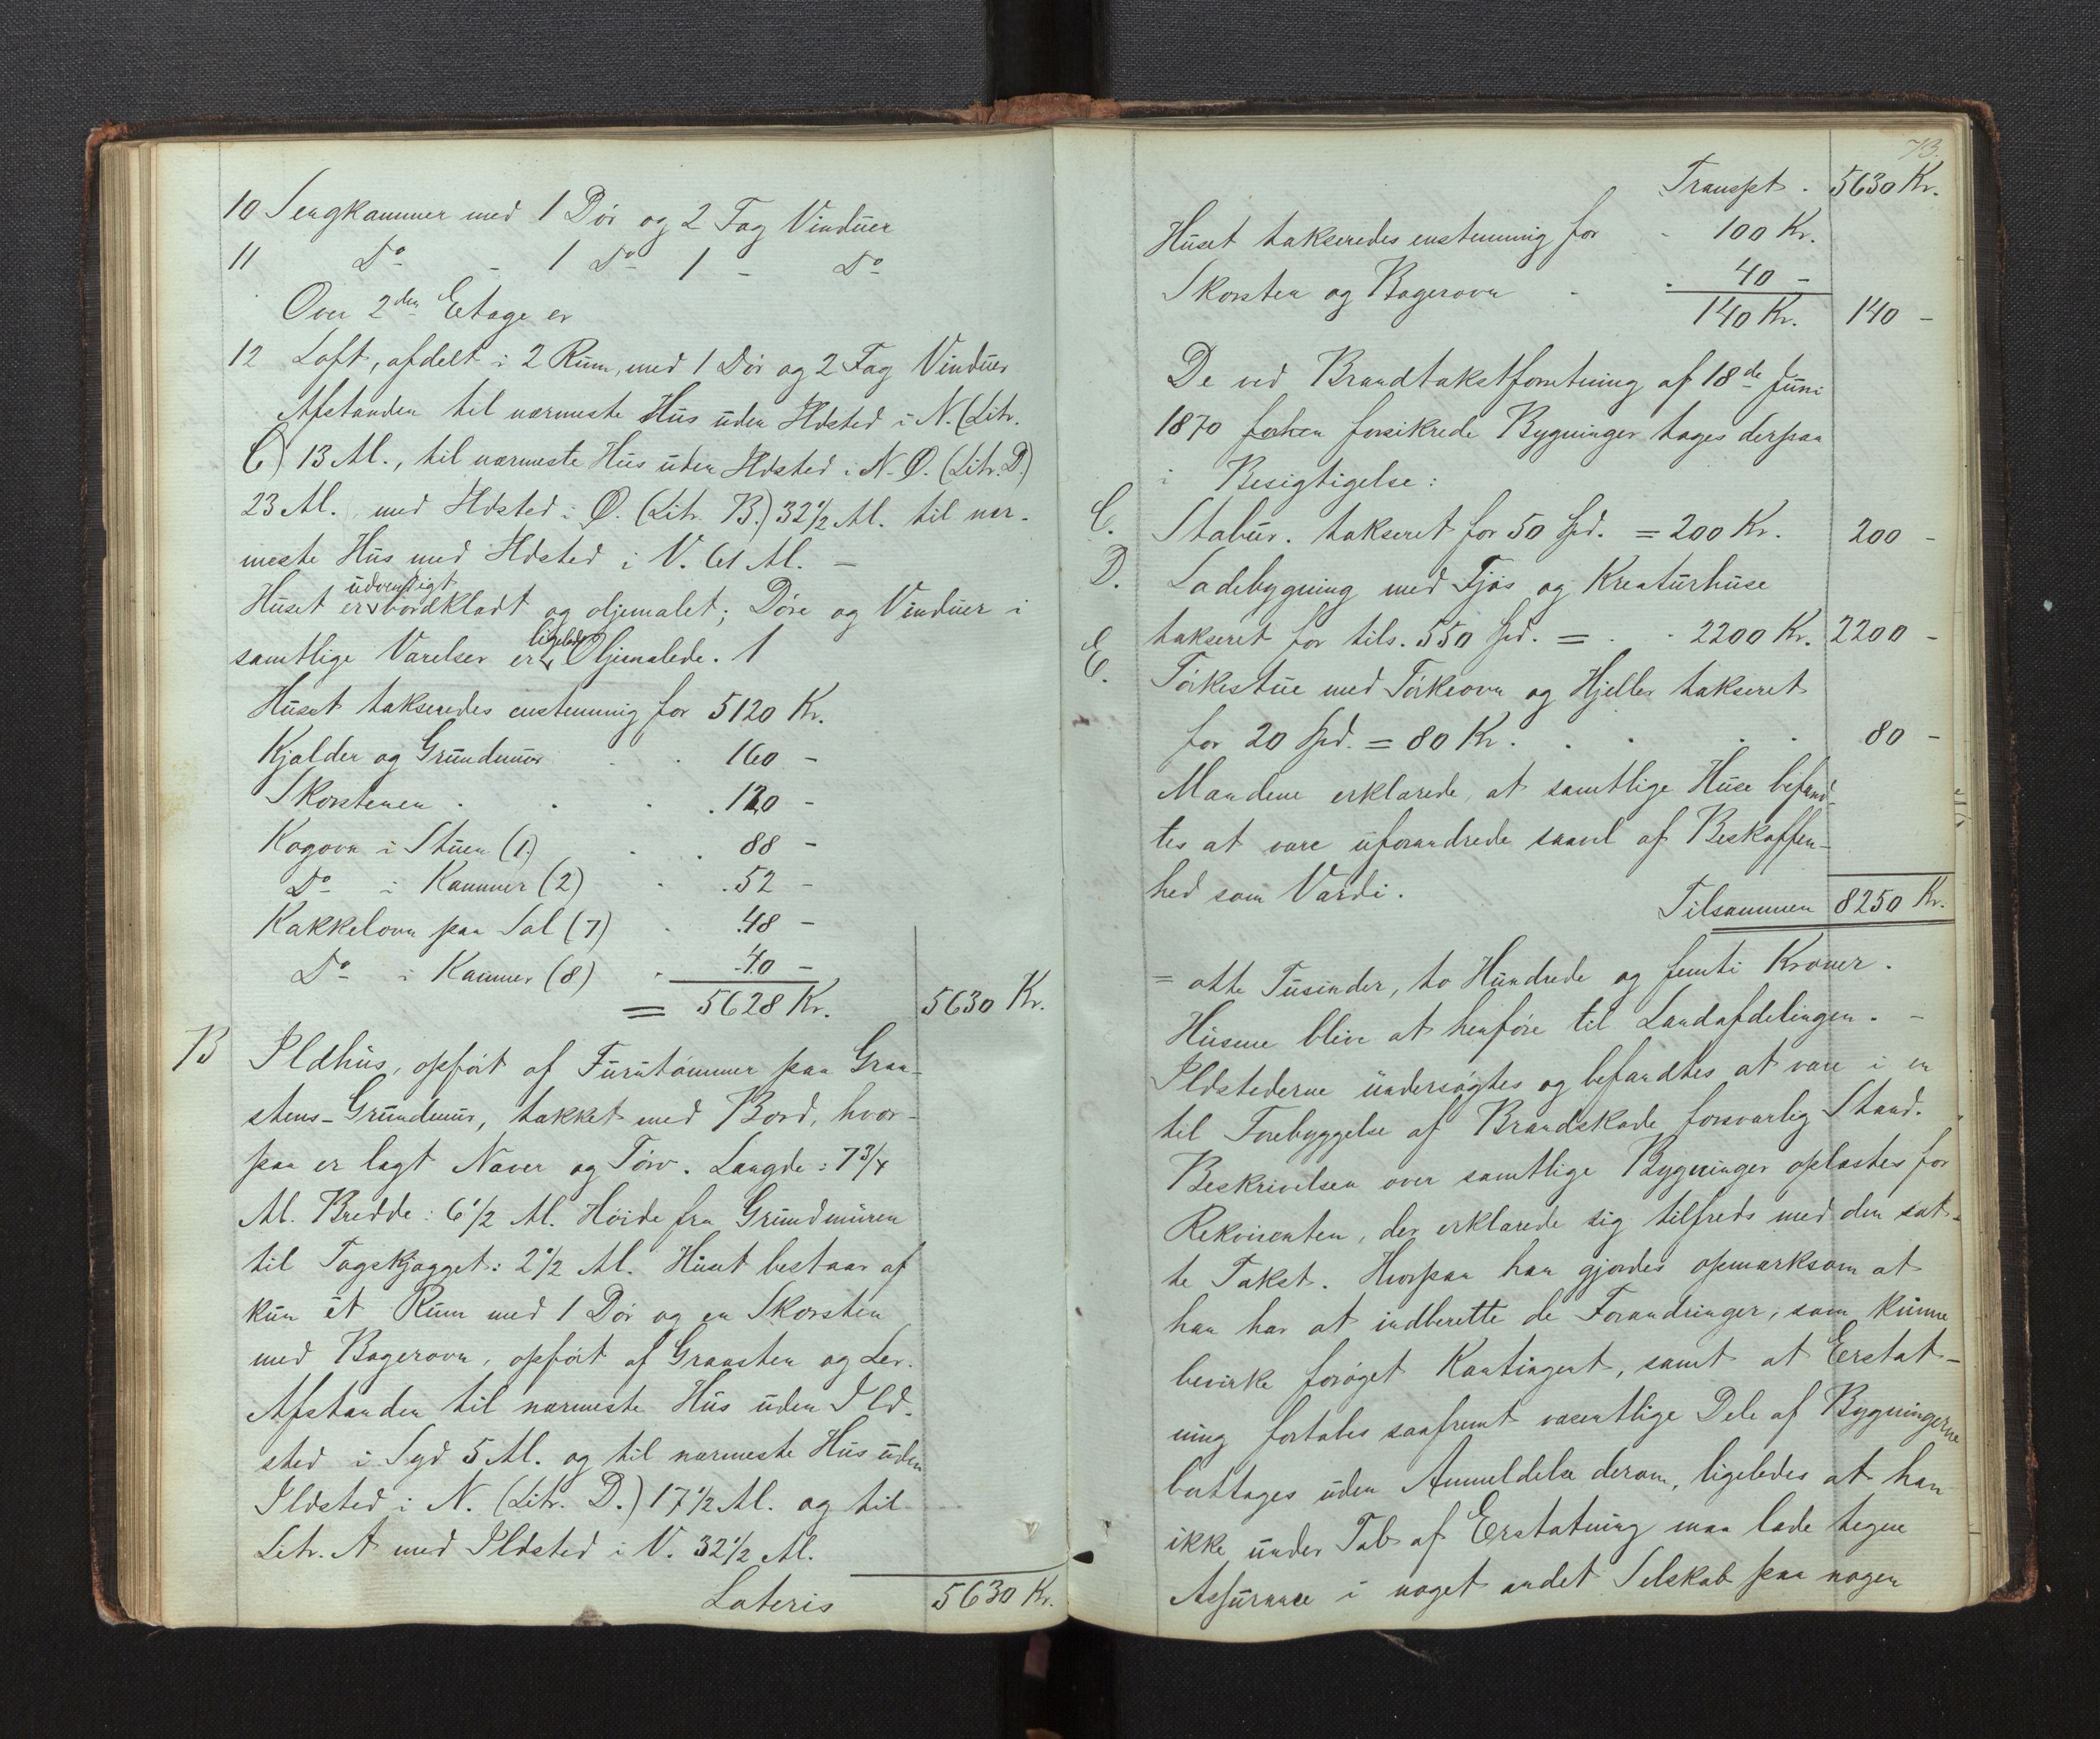 10 Sengkammer med 1 Dör og 2 Fag Vinduer
11 Do - 1 Do 1 - Do
Over 2den Etage er
12 Loft, afdelt i 2 Rum, med 1 Dör og 2 Fag Vinduer
Afstanden til nærmeste Hus uden Ildsted i N. (Litr.
C) 13 Al., til nærmeste Hus uden Ildsted i N.O. (Litr. D.)
23 Al. med Ildsted i Ø. (Litr. B.) 32 1/2 Al. til nær-
meste Hus med Ildsted i V. 61 Al. —
Huset er udvendigt bordklædt og oljemalet; Döre og Vinduer i
samtlige Værelser er ligeledes Oljemalede. 1
Huset takseredes enstemmig for 5120 Kr.
Kjælder og Grundmur . . 160 -
Skorstenen . . . . 120 -
Kogovn i Stuen (1.) . . 88 -
Do i Kammer (2) . . 52 -
Kakkelovn paa Sal (7) . 48 -
Do i Kammer (8) . 40 -
= 5628 Kr. 5630 Kr.
B Ildhus, opfört af Furutömmer paa Graa-
stens-Grundmur, tækket med Bord, hvor-
paa er lagt Næver og Törv. Længde: 7 3/4
Al. Bredde: 6 1/2 Al. Höide fra Grundmuren
til Tagskjægget: 2 1/2 Al. Huset bestaar af
kun ét Rum med 1 Dör og en Skorsten
med Bagerovn, opfört af Graasten og Ler.
Afstanden til nærmeste Hus uden Ild-
sted i Syd 5 Al. og til nærmeste Hus uden
Ildsted i N. (Litr. D.) 17 1/2 Al. og til
Litr. A med Ildsted i V. 32 1/2 Al.
Lateris 5630 Kr.
73.
Transpt. 5630 Kr.
Huset takseredes enstemmig for - 100 Kr.
Skorsten og Bagerovn - . 40 -
140 Kr. 140 -
De ved Brandtakstforretning af 18de Juni
1870 forhen forsikrede Bygninger toges derpaa
i Besigtigelse:
C. Stabur. takseret for 50 Spd. = 200 Kr. 200 -
D. Ladebygning med Fjös og Kreaturhuse
takseret for tils. 550 Spd. = . . 2200 Kr. 2200 -
E. Törkestue med Törkeovn og Hjeller takseret
for 20 Spd. = 80 Kr. . . . . 80 -
Mændene erklærede, at samtlige Huse befand-
tes at være uforandrede saavel af Beskaffen-
hed som Værdi.
Tilsammen 8250 Kr.
= otte Tusinder, to Hundrede og femti Kroner.
Husene blive at henföre til Landafdelingen. -
Ildstederne undersögtes og befandtes at være i en
til Forebyggelse af Brandskade forsvarlig Stand.
Beskrivelsen over samtlige Bygninger oplæstes for
Rekvirenten, der erklærede sig tilfreds med den sat-
te Takst. Hvorpaa han gjordes opmærksom at
han har at indberette de Forandringer, som kunne
bevirke foröget Kontingent, samt at Erstat-
ning fortabes saafremt væsentlige Dele af Bygningerne
borttages uden Anmeldelse derom, ligeledes at han
ikke under Tab af Erstatning maa lade tegne
Assurance i noget andet Selskab paa nogen